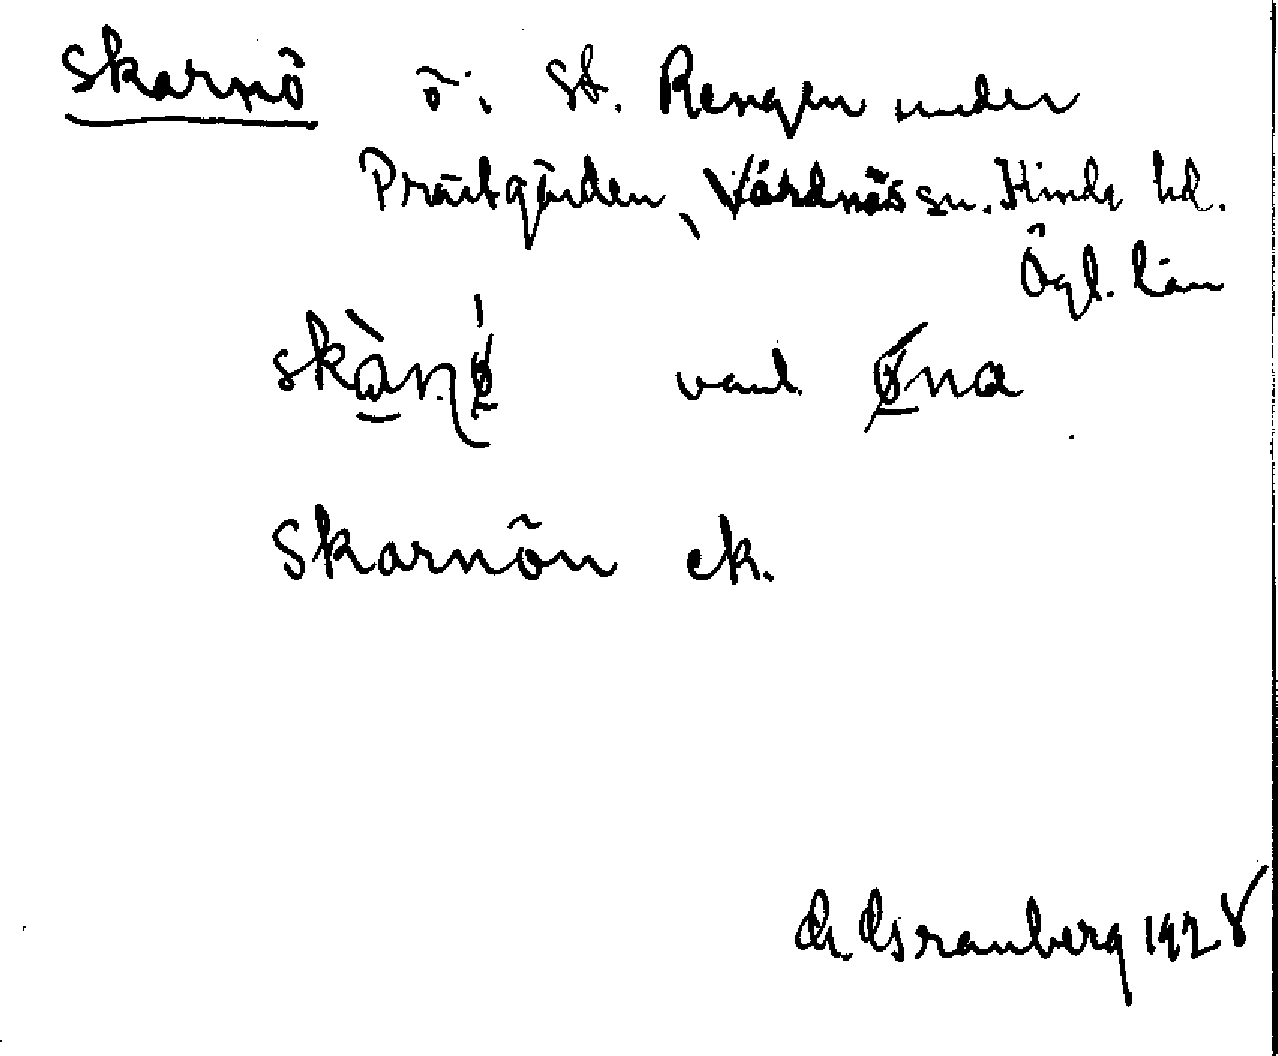 Skarnö ö i St. Rengen under
Prästgården, Vårdnäs sn. Kinda hd.
Ögl. län
skàṇǿ vanl. ǿna
Skarnön ek.
G. Granberg 1928